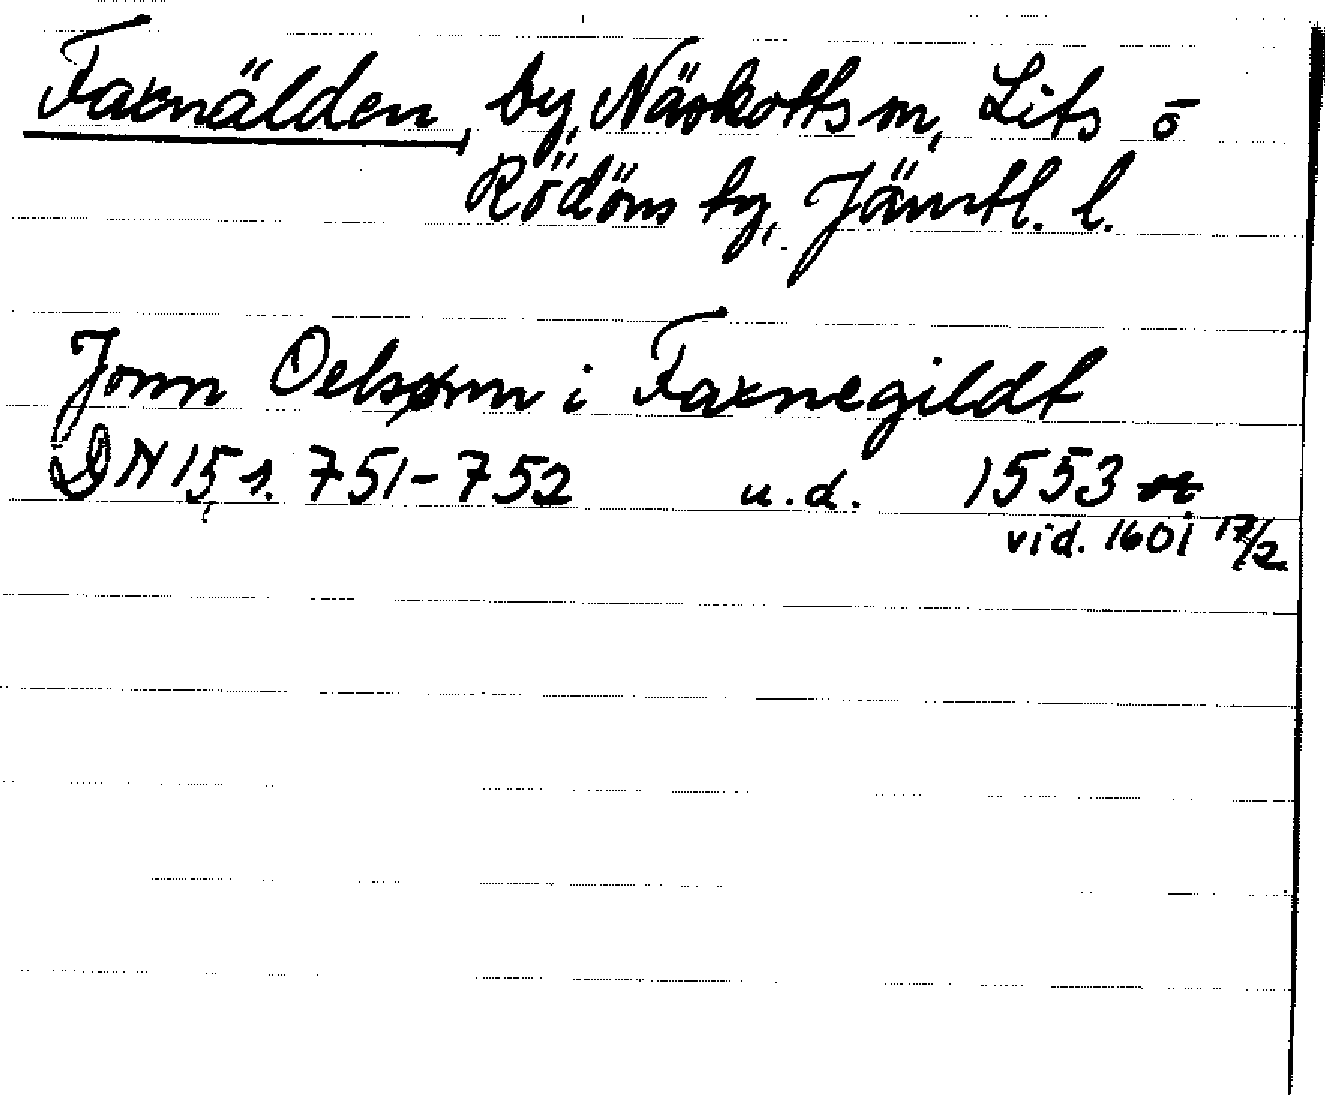 Faxnälden, by, Näskotts sn, Lits o
Rödöns tg, Jämtl. l.
Jonn Oelsonn i Faxnegildt
DN 15, s. 751-752 u.d. 1553
vid. 1601 17/2